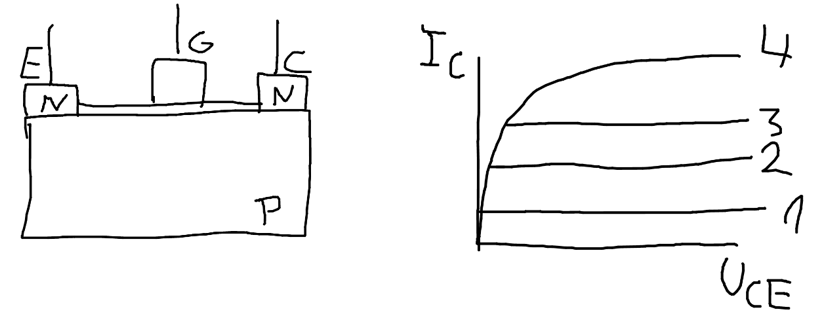 E
G
C
N
N
P
I_C
4
3
2
1
U_CE